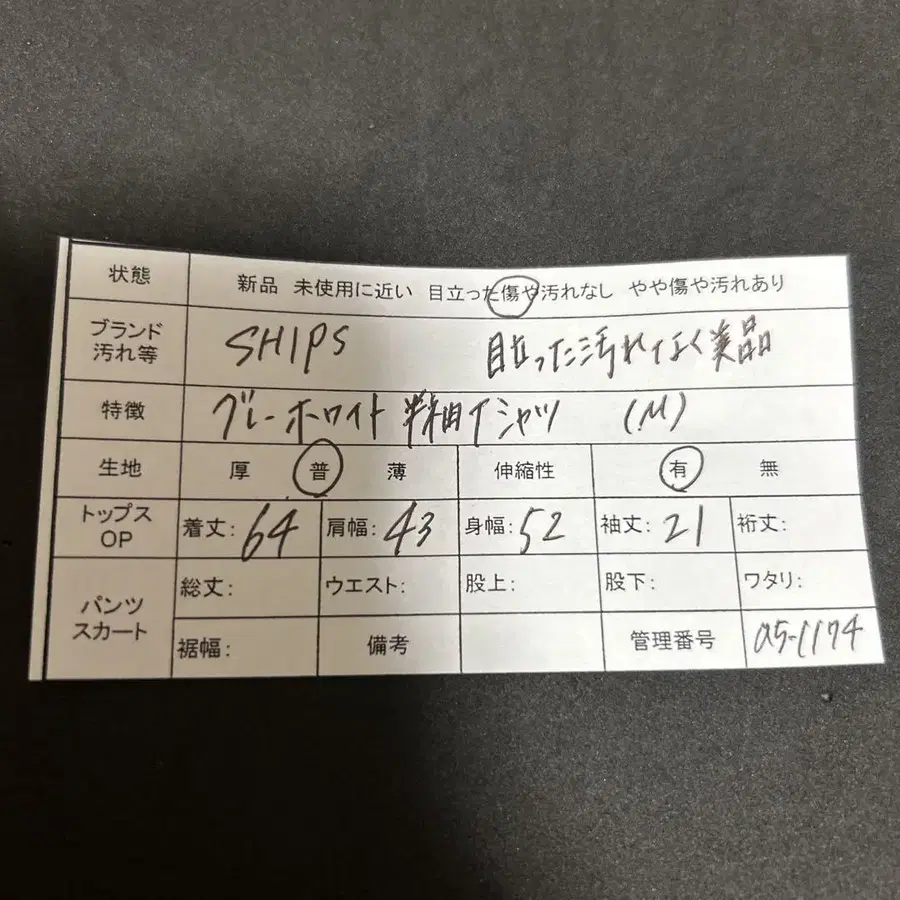 状態 新品 未使用に近い 目立った傷や汚れなし やや傷や汚れあり
ブランド 汚れ等 SHIPS 目立った汚れなく美品
特徴 グレーホワイト 半袖Tシャツ (M)
生地 厚 普 薄 伸縮性 有 無
トップス OP 着丈: 64 肩幅: 43 身幅: 52 袖丈: 21 裄丈:
パンツ スカート 総丈: ウエスト: 股上: 股下: ワタリ:
裾幅: 備考 管理番号 a5-1174